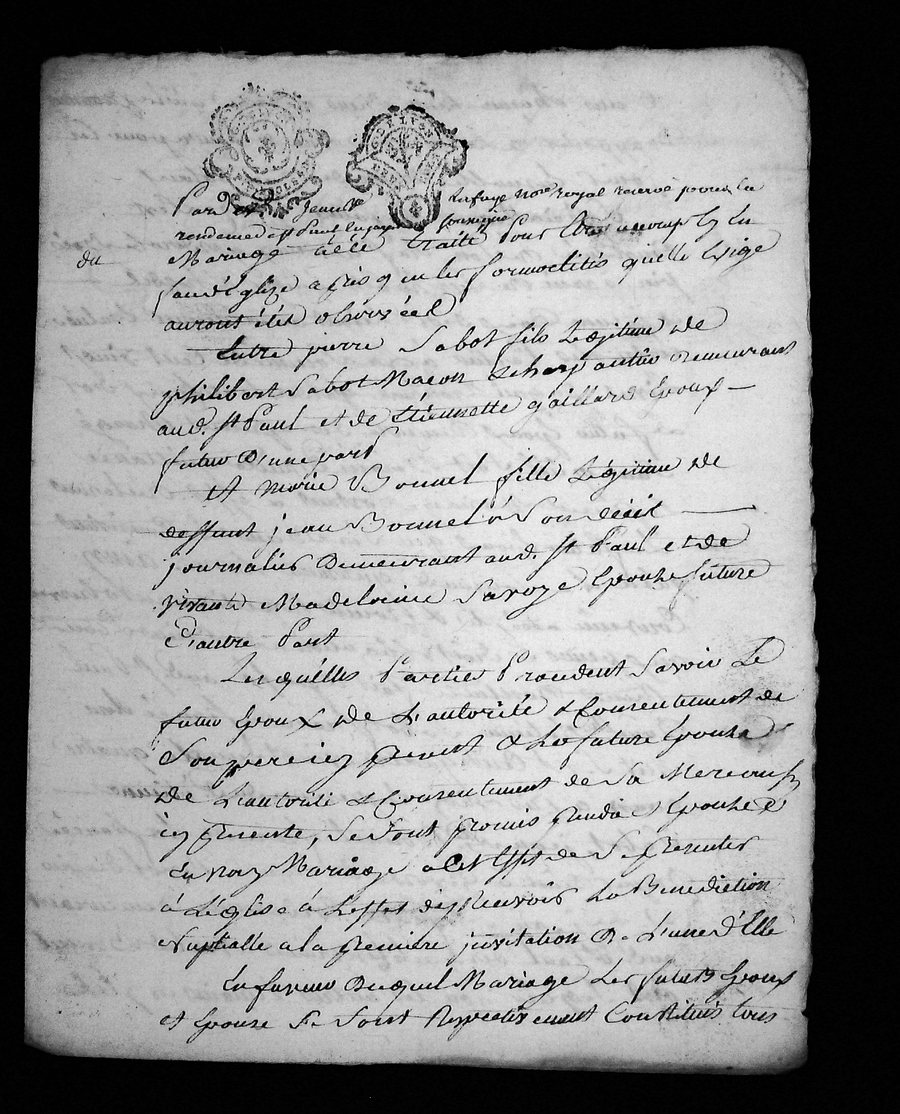 G. D. LYON
Pard Jean Bte Lafaye Nore Royal reservé pour la
Du
Mariage a été traité pour être accomply en
face d'Eglize après q'ue les formoelités qu'elle Exige
auront étés observéed
Entre pierre Sabot fils Legitime de
philibert Sabot Macon Demeurant
aud. St Paul et de Etiennette gaillard Epoux
futur D'une part
Et Marie Bonnel fille Légitime de
deffunt jean Bonnel à Son décéd
journalier Demeurant aud. St Paul et de
vivante Madelaine Savoye Epouse future
D'autre Part
Lesquelles Parties Procedent Savoir Le
futur Epoux de L'autorité & Consentement de
Son pere icy present & La future Epouse
De L'autorité & Consentement de Sa Mere aussy
icy presente, Se Sont promis prendre & Epouser
En vray Mariage a Cet Effet de Se presenter
à L'église à L'effet d'y Recevoir La Benediction
Nuptialle a la premiere jnvitation De L'une d'Elle
En faveur Duquel Mariage Les futurs Epoux
et Epouse Se Sont Respectivement Constitués tous